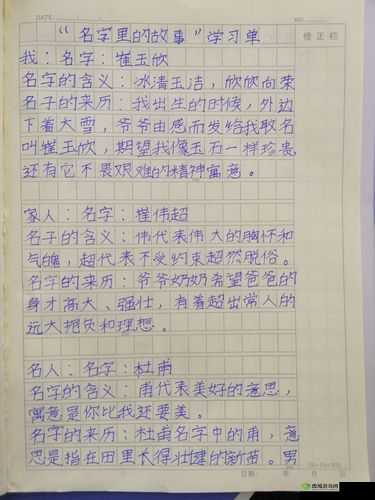 DATE
NO.
“名字里的故事”学习单
修正栏
我：名字：崔玉欣
名字的含义：冰清玉洁，欣欣向荣
名子的来历：我出生的时候，外边
下着大雪，爷爷由感而发给我取名
叫崔玉欣，期望我像玉石一样珍贵
还有它不畏艰难的精神寓意。
家人：名字：崔伟超
名子的含义：伟代表伟大的胸怀和
气魄，超代表不受约束超然脱俗。
名字的来历：爷爷奶奶希望爸爸的
身才高大、强壮，有着超出常人的
远大抱负和理想。
名人：名字：杜甫
名字的含义：甫代表美好的意思，
寓意是你比我还要美。
名字的来历：杜甫名字中的甫，意
思是指在田里长得壮健的新苗。男